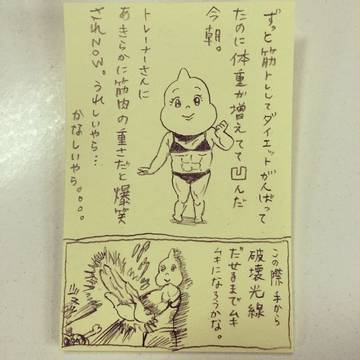 ずっと筋トレしてダイエットがんばって
たのに体重が増えてて凹んだ
今朝。
トレーナーさんに
あきらかに筋肉の重さだと爆笑
されNOW。うれしいやら…
かなしいやら。。。
この際手から
破壊光線
だせるまでムキ
ムキになろうかな。